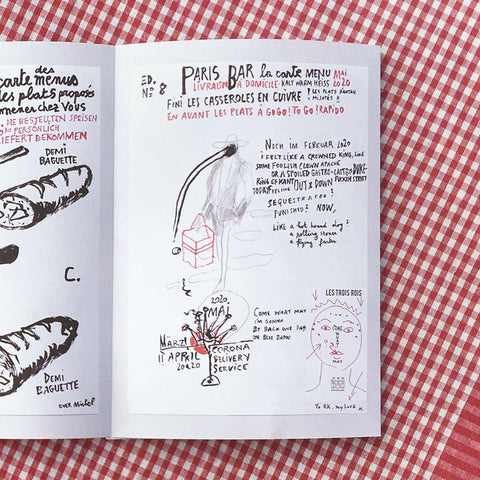 des
carte menus
les plats proposés
mener chez vous
HE BESTELLTEN SPEISEN
SO PERSÖNLICH
LIEFERT BEKOMMEN
DEMI
BAGUETTE
C.
DEMI
BAGUETTE
EVER Michel
ED.
No 8
PARIS BAR la carte MENU Mai
LIVRAISON À DOMICILE KALT WARM HEISS 2020
FINI LES CASSEROLES EN CUIVRE ! LES PLATS
EN AVANT LES PLATS À GOGO! TO GO! RAPIDO
NOCH IM FEBRUAR 2020
I FELT LIKE A CROWNED KING, LIKE
SOME FOOLISH CLOWN APACHE
OR A SPOILED GASTRO-CASTRO
KING OF KANT
TODAY FEELING OUT & DOWN
SEQUESTRATED!
PUNISHED? NOW,
LIKE A hot hound dog?
a rolling stone
a flying
2020
MAI
MÄRZ
APRIL
2020
CORONA
DELIVERY
SERVICE
COME WHAT MAY
I'm GONNA
BE BACK ONE DAY
ON BLUE
LES TROIS ROIS
To KK, my Love M.